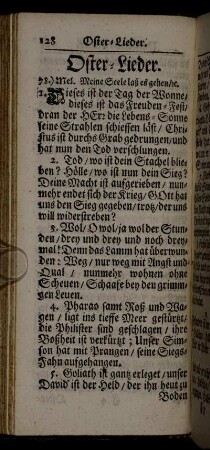 128 Oster-Lieder.
Oster-Lieder.
78.) Mel. Meine Seele laß es gehen/ꝛc.
1. Dieses ist der Tag der Wonne/
dieses ist das Freuden-Fest/
dran der HErr die Lebens-Sonne
seine Strahlen schiessen läst/ Chri-
stus ist durchs Grab gedrungen/und
hat nun den Tod verschlungen.
2. Tod/ wo ist dein Stachel blie-
ben? Hölle/ wo ist nun dein Sieg?
Deine Macht ist aufgerieben/ nun-
mehr endet sich der Krieg/ GOtt hat
uns den Sieg gegeben/trotz/ der uns
will widerstreben?
3. Wol/ O wol/ja wol der Stun-
den/ drey und drey und noch drey-
mal! Denn das Lamm hat überwun-
den: Weg/ nur weg mit Angst und
Qual/ nunmehr wohnen ohne
Scheuen/ Schaafe bey den grimmi-
gen Leuen.
4. Pharao samt Roß und Wa-
gen/ ligt ins tieffe Meer gestürtzt/
die Philister sind geschlagen/ ihre
Boßheit ist verkürtzt; Unser Sim-
son hat mit Prangen/ seine Sieges-
Fahn aufgehangen.
5. Goliath ist gantz erleget/unser
David ist der Held/ der ihn heut zu
Boden